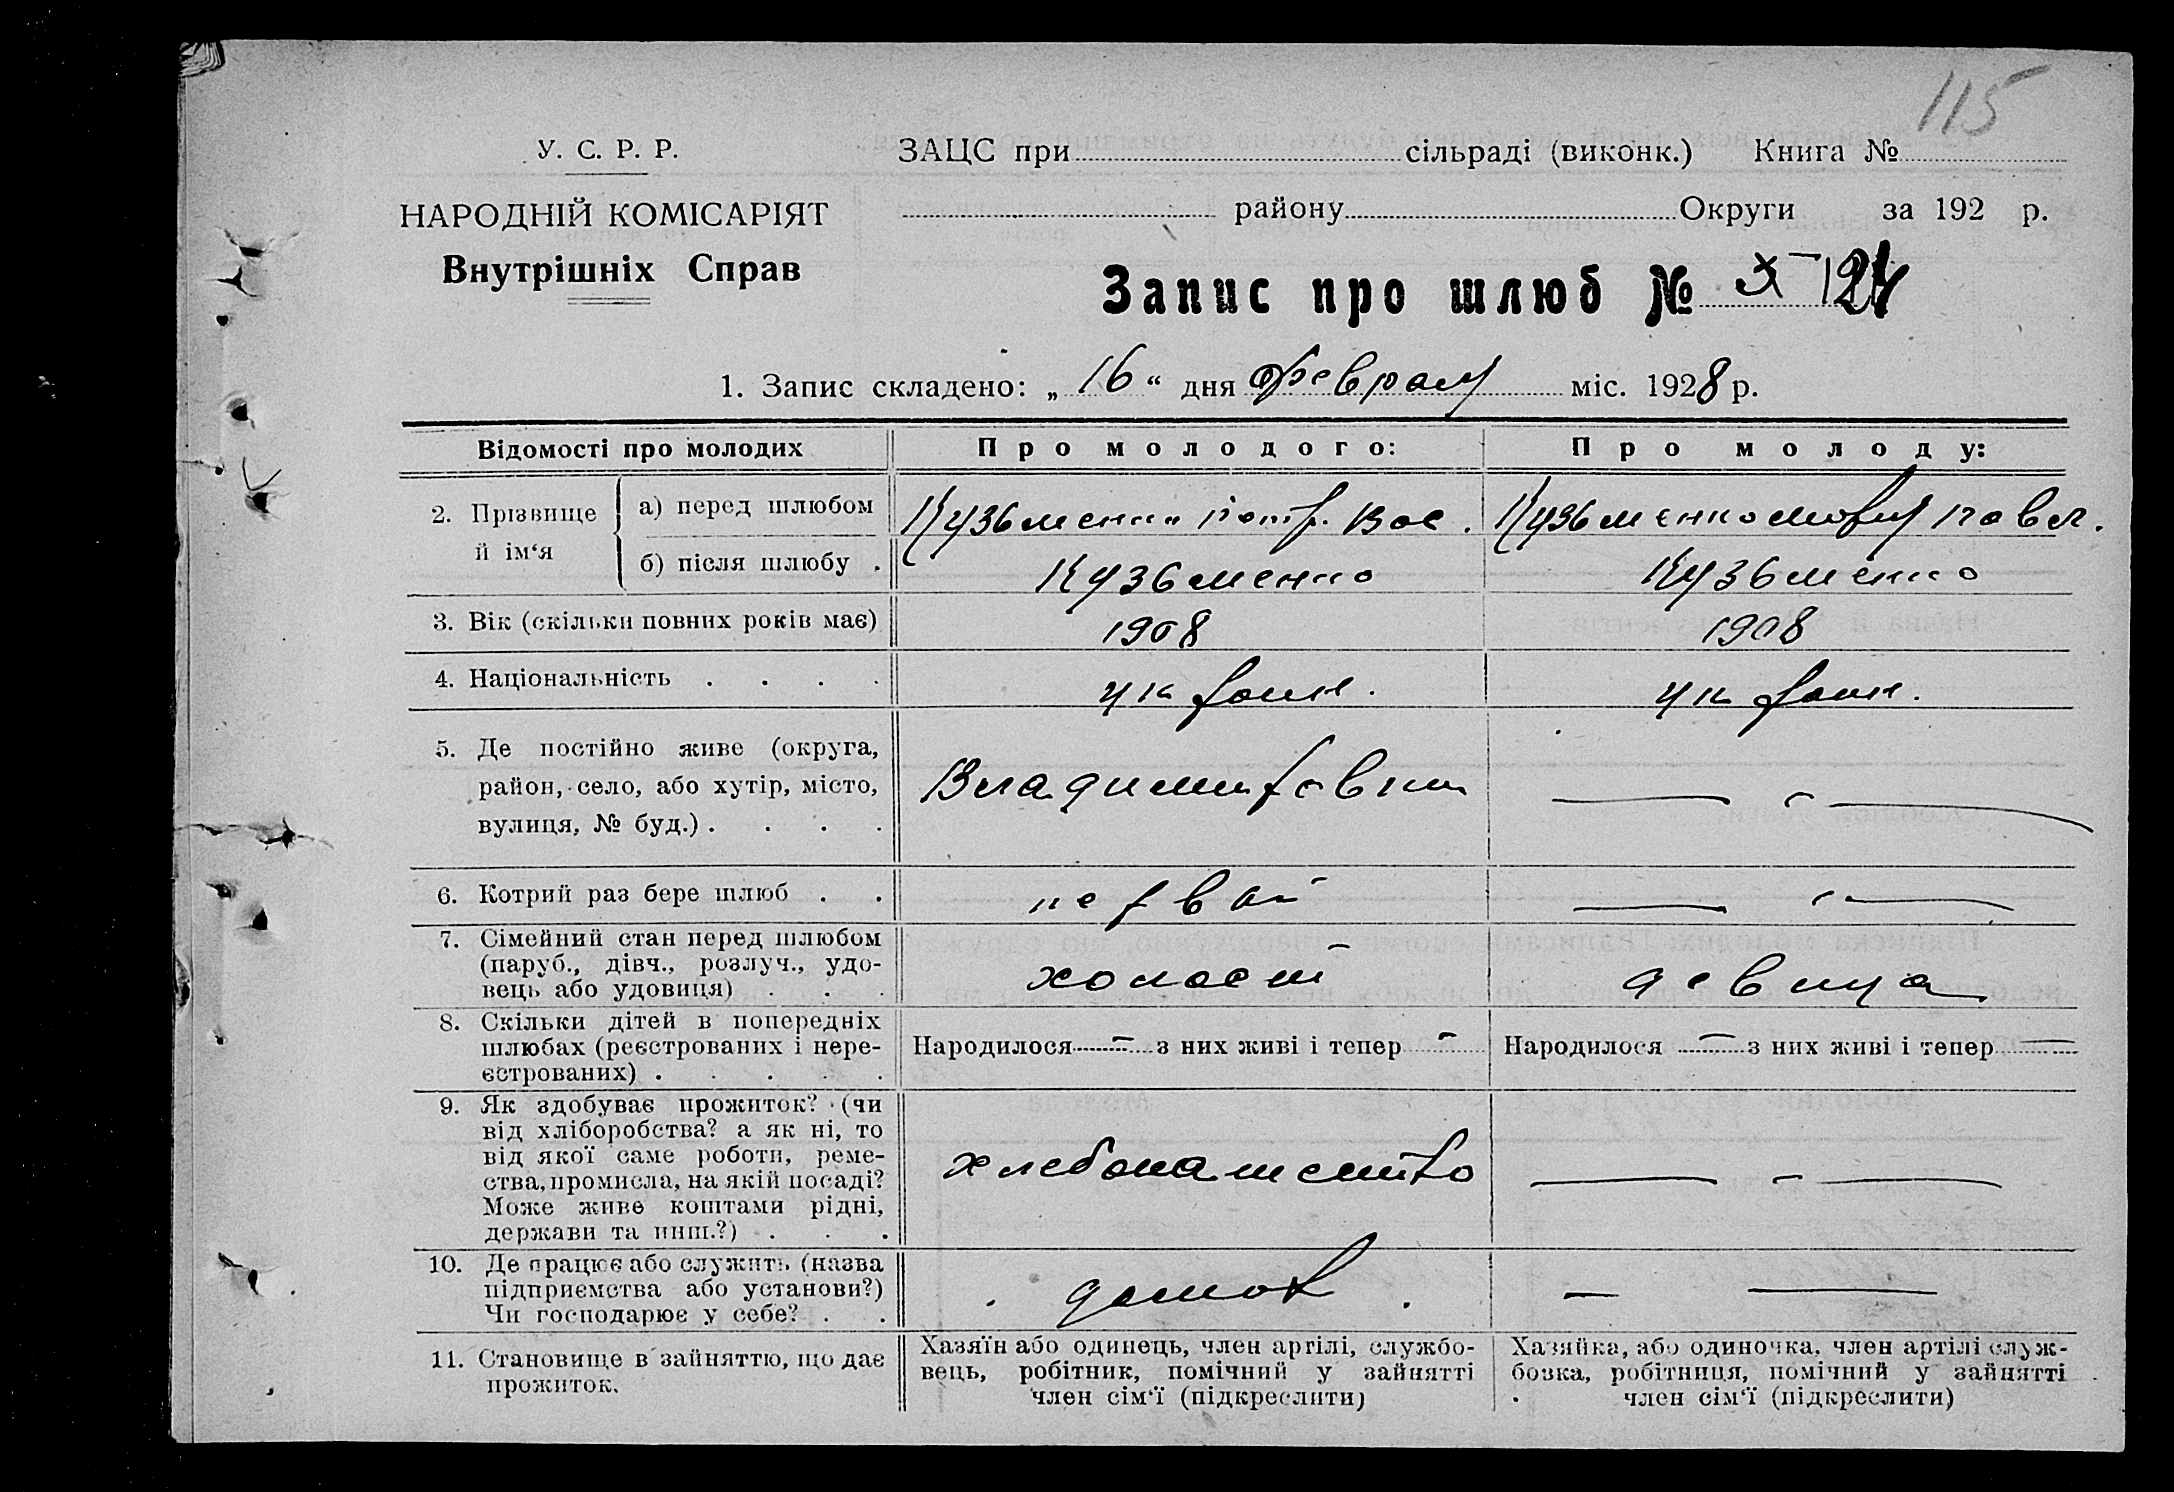 115
У. С. Р. Р.
ЗАЦС при сільраді (виконк.) Книга №
НАРОДНІЙ КОМІСАРІЯТ
району Округи за 192 р.
Внутрішніх Справ
Запис про шлюб №
1. Запис складено: „ 16 “ дня Февраля міс. 1928 р.
Відомості про молодих
Про молодого:
Про молоду:
2. Прізвище й ім‘я
а) перед шлюбом
Кузьменко Петр. Вас.
Кузьменко Мария Павл.
б) після шлюбу .
Кузьменко
Кузьменко
3. Вік (скільки повних років має)
1908
1908
4. Національність . . . .
украин.
украин.
5. Де постійно живе (округа,
район, село, або хутір, місто,
вулиця, № буд.) . . . .
Владимировки
— „ —
6. Котрий раз бере шлюб . .
первый
— „ —
7. Сімейний стан перед шлюбом
(паруб., дівч., розлуч., удо-
вець або удовиця) . . .
холост
девица
8. Скільки дітей в попередніх
шлюбах (реєстрованих і нере-
єстрованих) . . . . .
Народилося — з них живі і тепер —
Народилося — з них живі і тепер —
9. Як здобуває прожиток? (чи
від хліборобства? а як ні, то
від якої саме роботи, реме-
ства, промисла, на якій посаді?
Може живе коштами рідні,
держави та инш.?) . . .
хлебопашество
— „ —
10. Де працює або служить (назва
підприємства або установи?)
Чи господарює у себе? . .
— —
11. Становище в зайняттю, що дає
прожиток.
Хазяїн або одинець, член артілі, службо-
вець, робітник, помічний у зайнятті
член сім‘ї (підкреслити)
Хазяйка, або одиночка, член артілі служ-
бовка, робітниця, помічний у зайнятті
член сім‘ї (підкреслити)